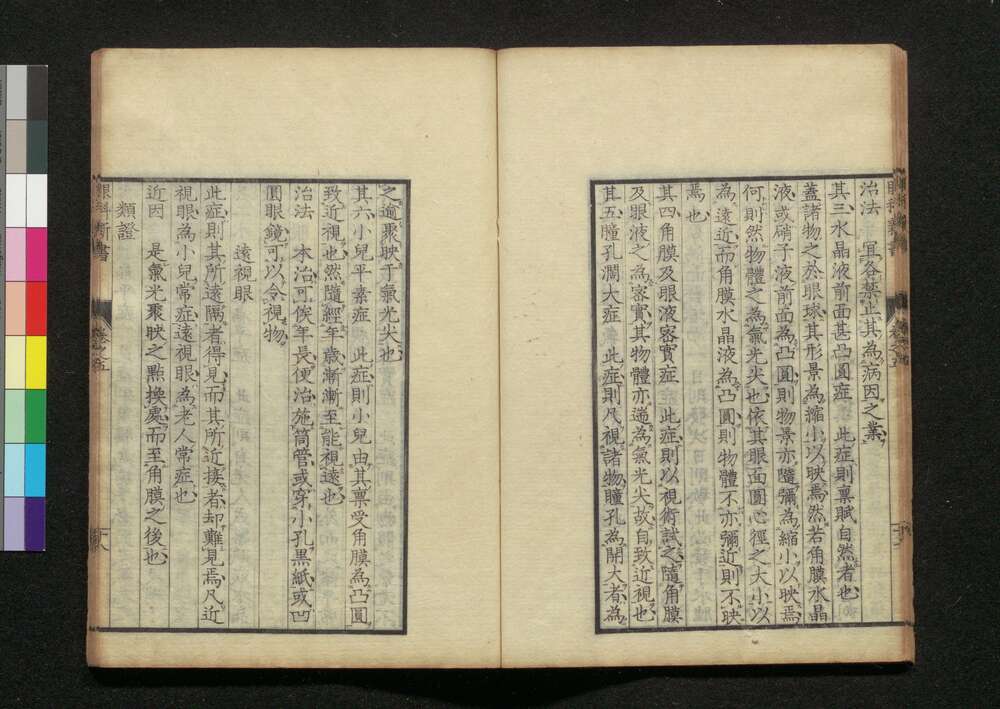 治法　宜各禁止其為病因之業
其三水晶液前面甚凸圓症　此症則稟賦自然者也
蓋諸物之於眼球其形景為縮小以映焉然若角膜水晶
液或硝子液前面為凸圓則物景亦隨彌為縮小以映焉
何則然物體之為氣光尖也依其眼面圓心徑之大小以
為遠近而角膜水晶液為凸圓則物體不亦彌近則不映
焉也
其四角膜及眼液密實症　此症則以視術試之隨角膜
及眼液之為密實其物體亦遄為氣光尖故自致近視也
其五瞳孔濶大症　此症則凡視諸物瞳孔為開大者為
之遄聚映于氣光尖也
其六小兒平素症　此症則小兒由其稟受角膜為凸圓
致近視也然隨經年歲漸漸至能視遠也
治法　本治可俟年長便治施筒管或穿小孔黑紙或凹
圓眼鏡可以令視物
遠視眼
此症則其所遠隔者得見而其所近接者却難見焉凡近
視眼為小兒常症遠視眼為老人常症也
近因　是氣光聚映之點換處而至角膜之後也
類證
眼科新書
卷之五
十八